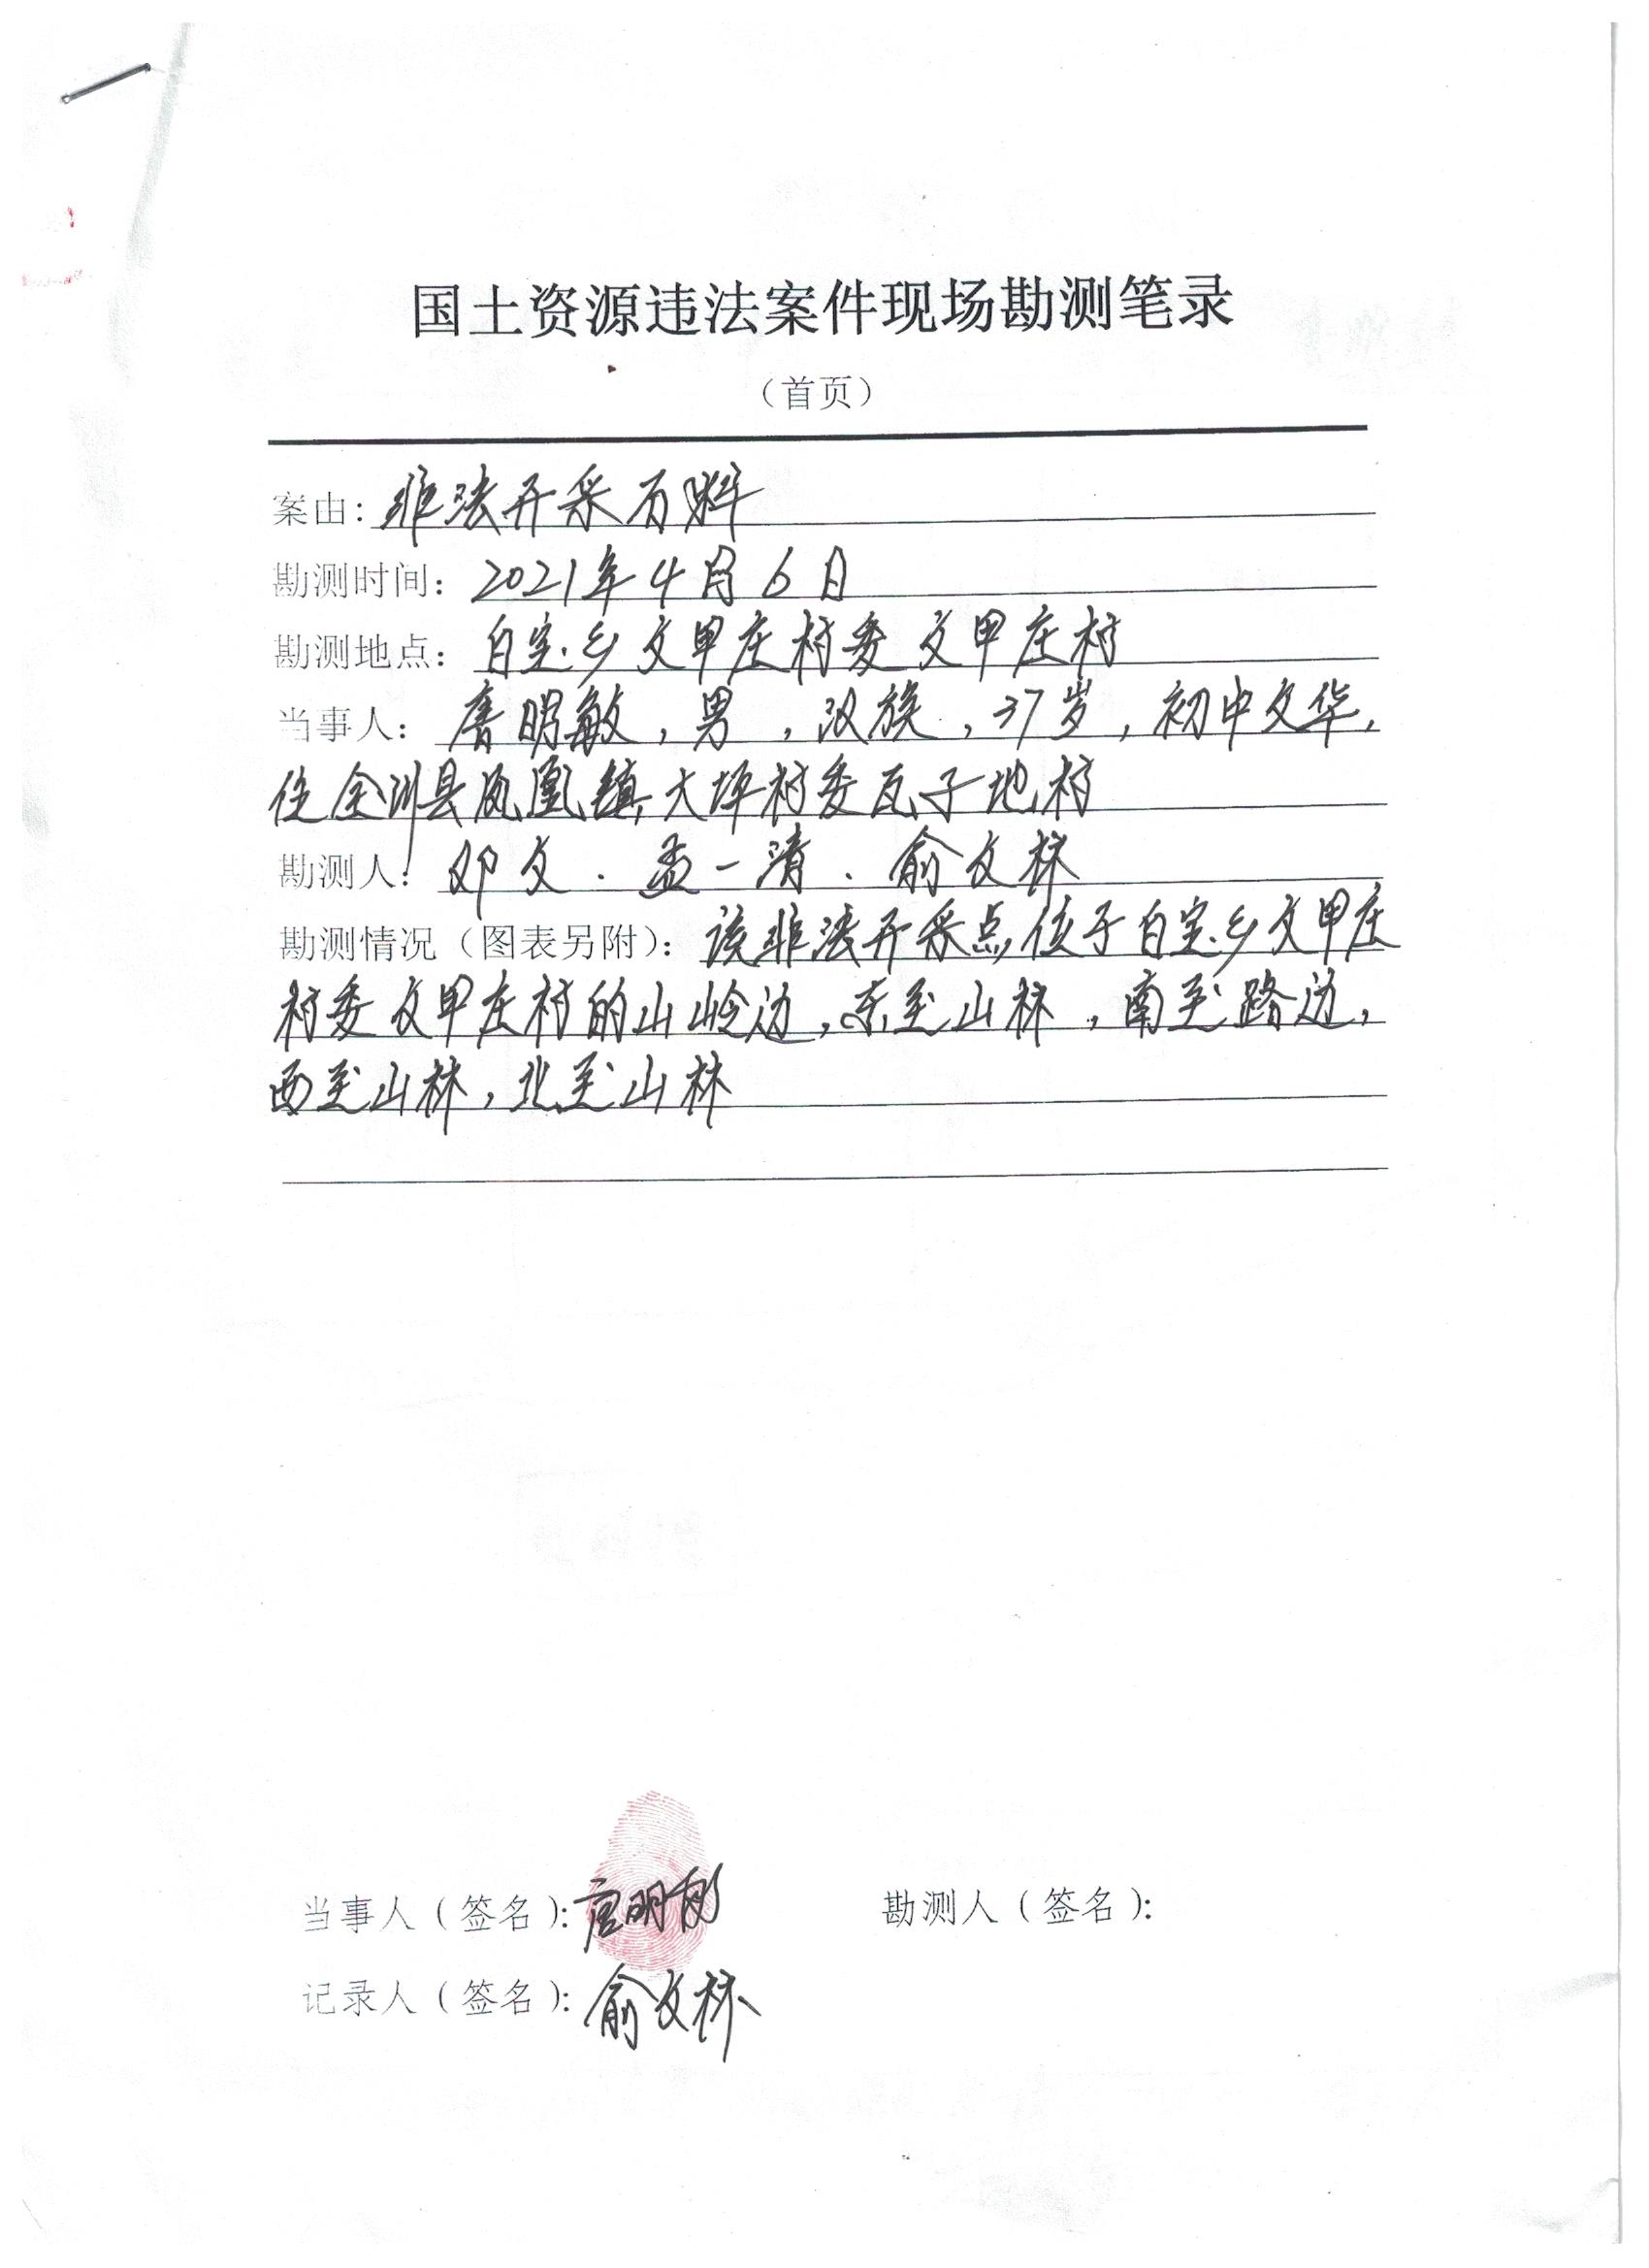 国土资源违法案件现场勘测笔录
（首页）
案由：非法开采石料
勘测时间：2021年4月6日
勘测地点：白宝乡文甲庄村委文甲庄村
当事人：唐明敏，男，汉族，37岁，初中文华，
住全州县凤凰镇大坪村委瓦子地村
勘测人：邓文、孟一清、俞文林
勘测情况（图表另附）：该非法开采点位于白宝乡文甲庄
村委文甲庄村的山岭边，东至山林，南至路边，
西至山林，北至山林
当事人（签名）：唐明敏 勘测人（签名）：
记录人（签名）：俞文林